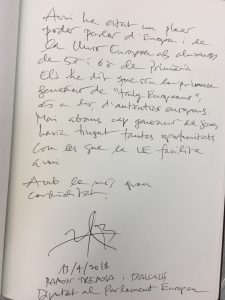 Avui ha estat un plaer
poder parlar d'Europa i de
la Unió Europea als alumnes
de 5è i 6è de Primària.
Els he dit que són la primera
generació de "truly Europeans",
és a dir, d'autèntics europeus.
Mai abans cap generació de joves
havia tingut tantes oportunitats
com les que la UE facilita
avui.
Amb la meva gran
cordialitat,
13/4/2018
RAMON TREMOSA i BALCELLS
Diputat al Parlament Europeu